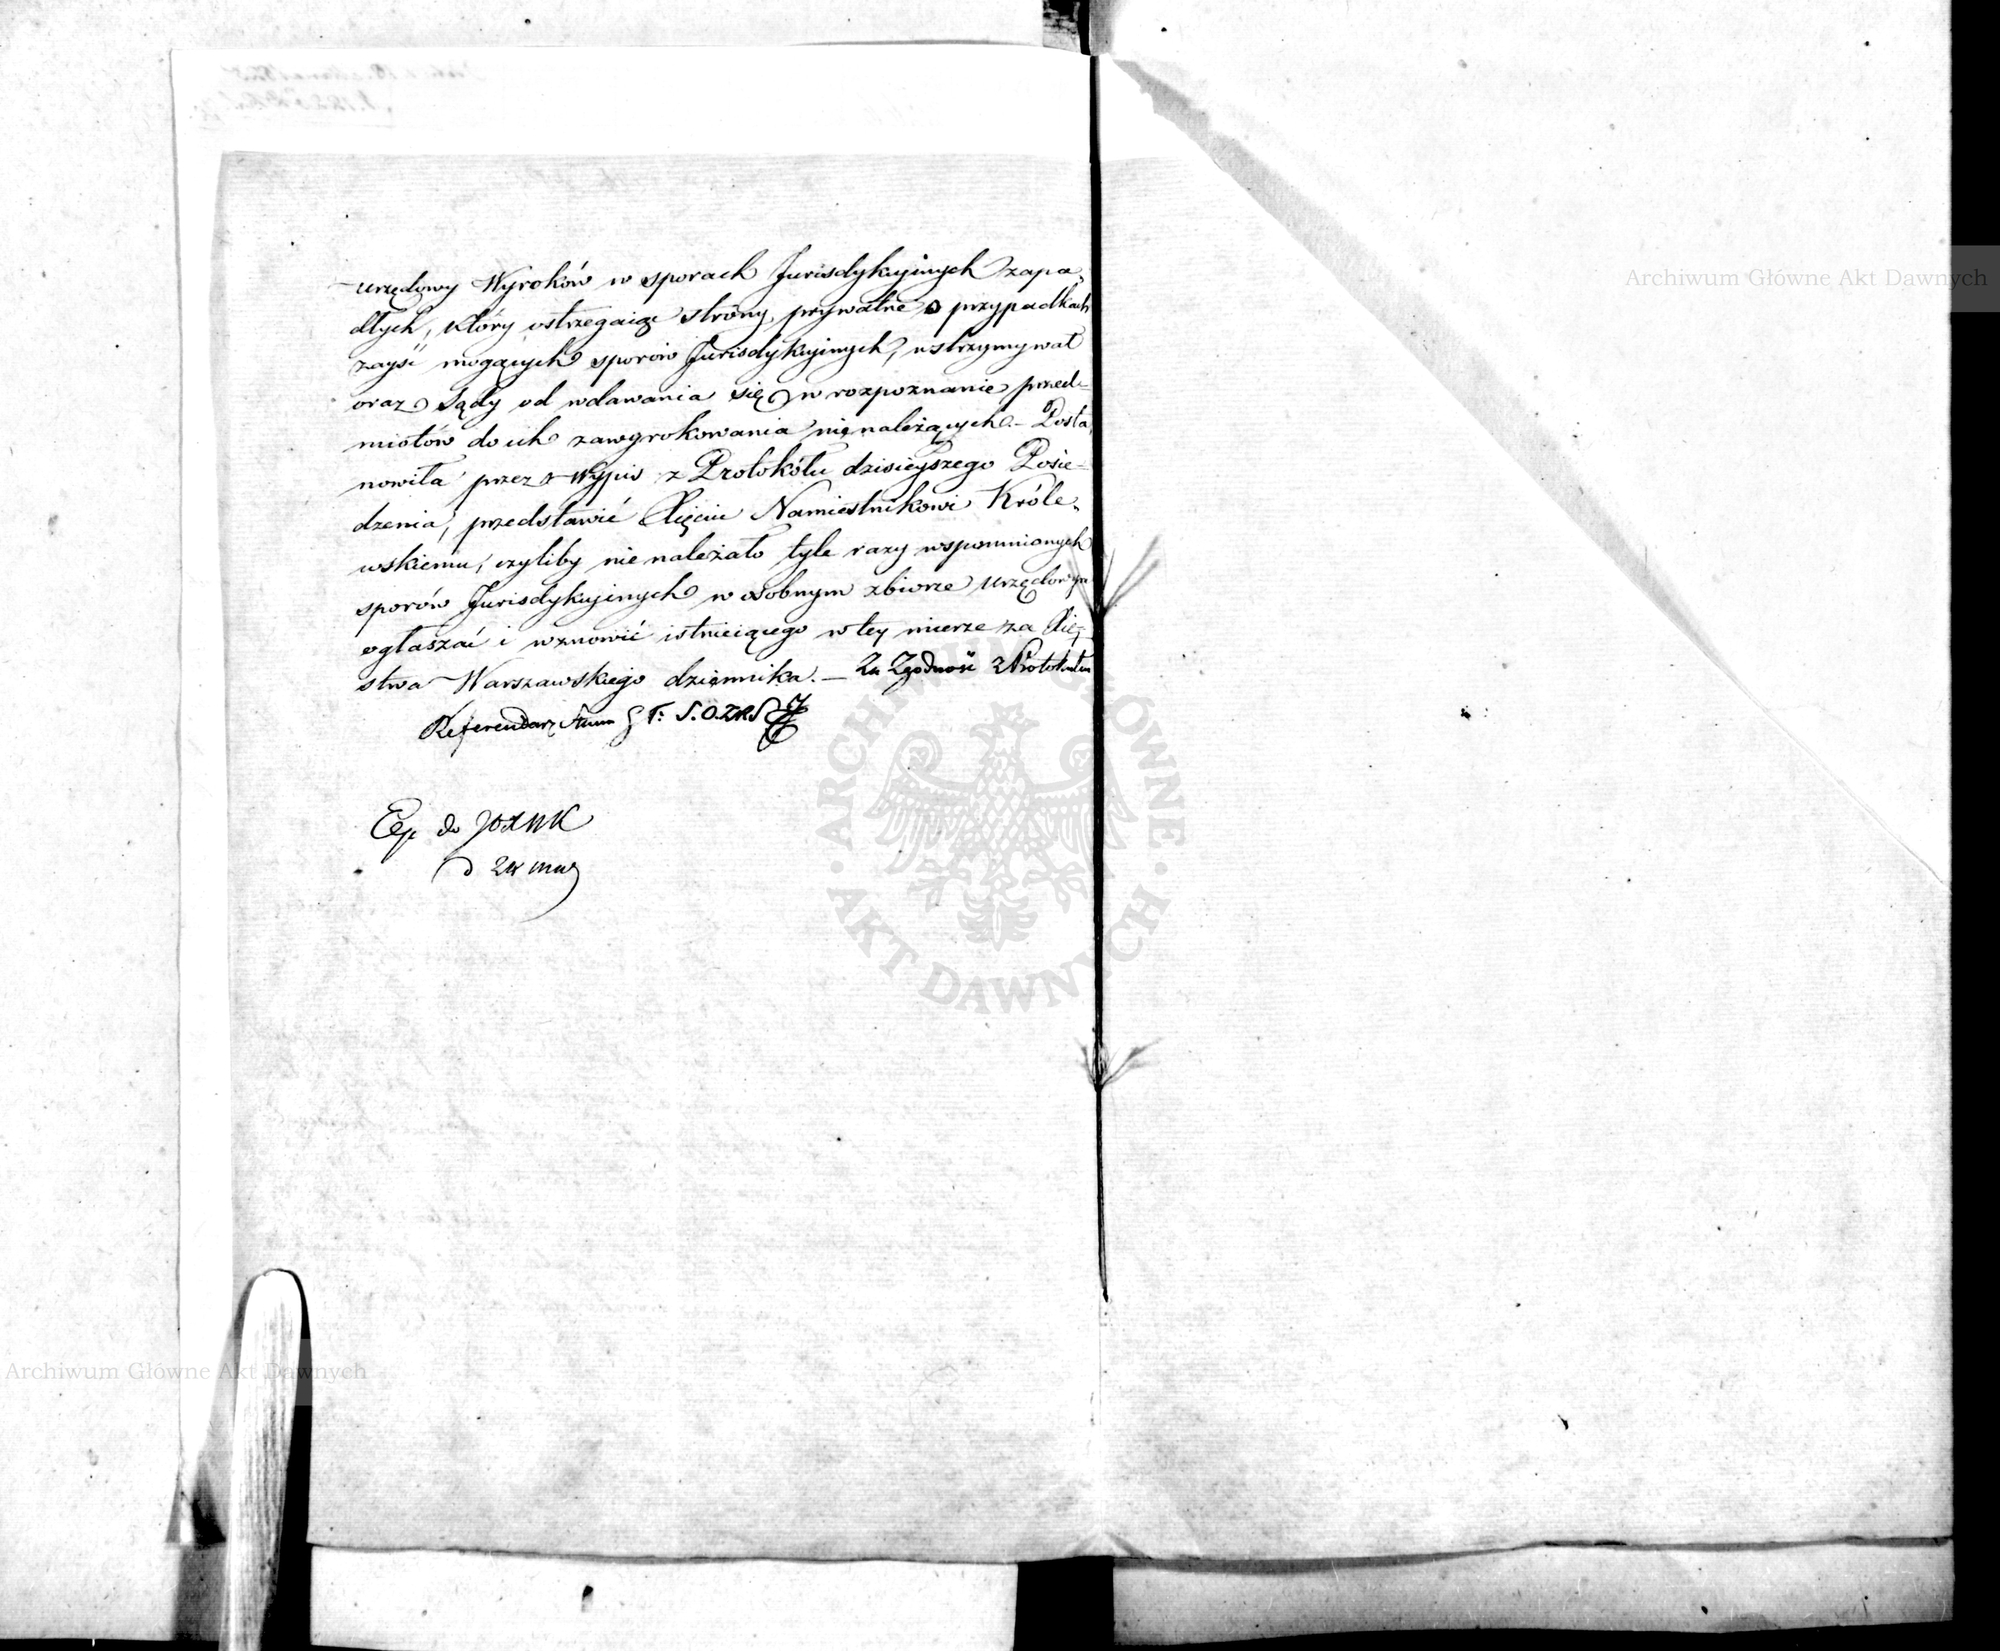 urzędowy Wyroków w sporach Jurisdykcyinych zapa-
dłych, który ostrzegaiąc strony prywatne o przypadkach
zayść mogących sporów Jurisdykcyinych, wstrzymywał
oraz Sądy od wdawania się w rozpoznanie przed-
miotów do ich zawyrokowania nienależących. – Posta-
nowiła przez Wypis z Protokółu dzisieyszego Posie-
dzenia, przedstawić Xięciu Namiestnikowi Króle-
wskiemu, czyliby nie należało tyle razy wspomnionych
sporów Jurisdykcyinych w osobnym zbiorze urzędowym
ogłaszać i wznowić istnieiącego w tey mierze za Xię-
stwa Warszawskiego dziennika. – Za Zgodność z Protokułem
Referendarz Stanu
Exp do
d 24 maj
Archiwum Główne Akt Dawnych
Archiwum Główne Akt Dawnych
ARCHIWUM GŁÓWNE
AKT DAWNYCH